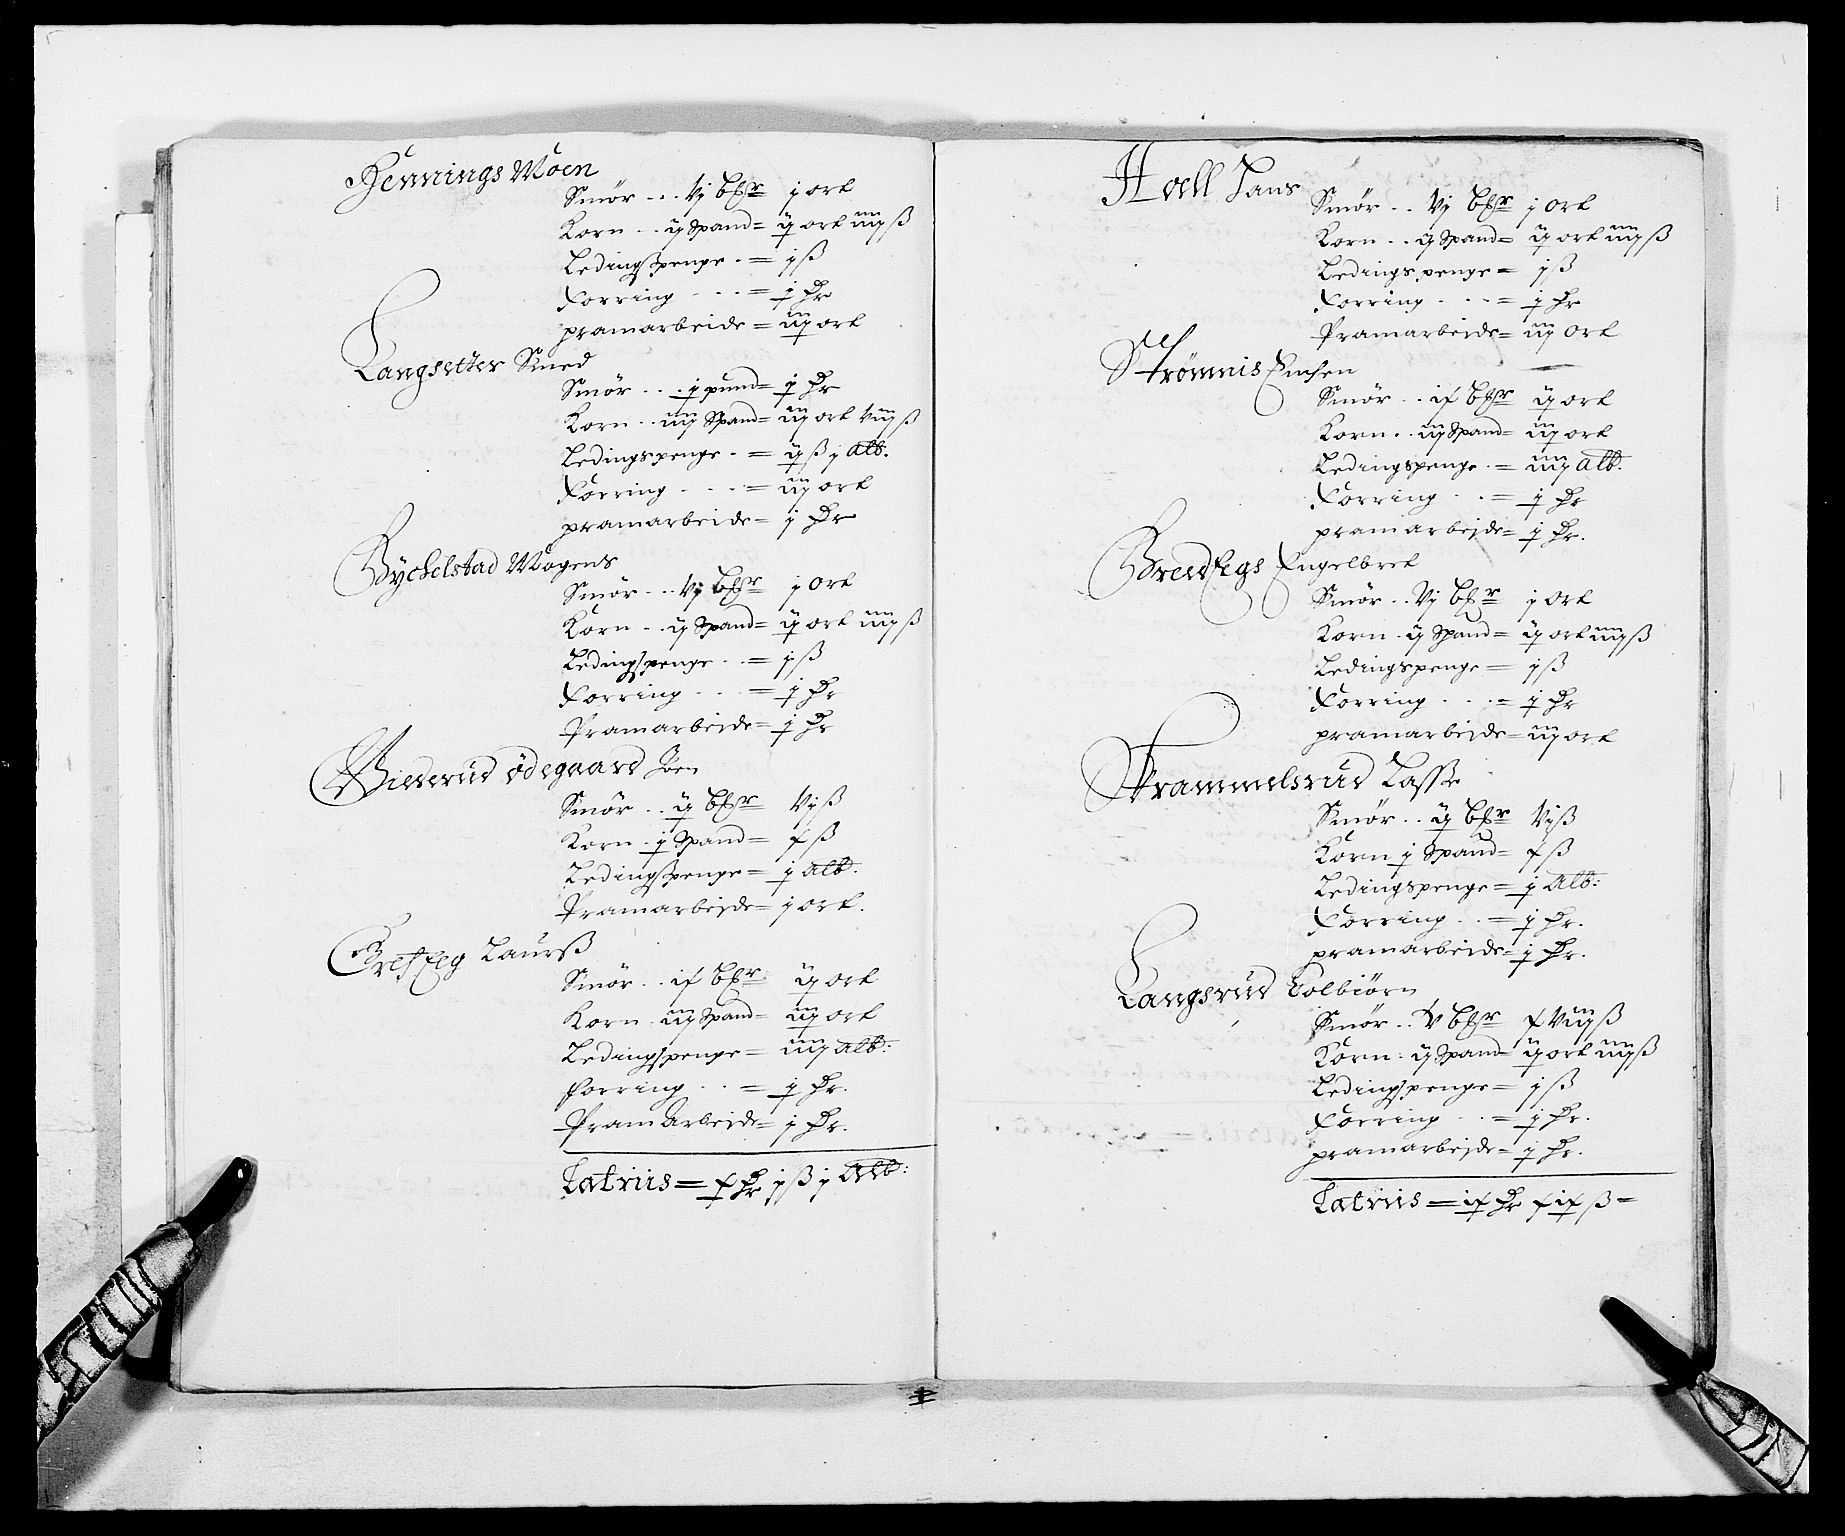 Hennings Moen
Smör ... vj bfr j ort
Korn .. ij Spand = ij ort iiij ß
Ledingspenge . = j ß
Forring .... = j dr
pramarbeide = iij ort
Langsetter Smed
Smör .... j pund = j dr
Korn .. iiij Spand = iij ort viij ß
Ledingspenge . = ij ß j alb.
Forring .... = iij ort
pramarbeide = j dr
Byckelstad Mogens
Smör ... vj bfr j ort
Korn .. ij Spand = ij ort iiij ß
Ledingspenge .. = j ß
Forring .... = j dr
Pramarbeide = j dr
Gielerud ødegaard Joen
Smör .. ij bfr vij ß
Korn . j Spand = x ß
Ledingspenge = j alb.
Pramarbejde = j ort.
Laurß
Smör .. ix bfr ij ort
Korn . iij Spand = iij ort
Ledingspenge = iiij alb:
Forring .. = j dr.
Pramarbejde = j dr.
Latriis = x dr j ß j alb:
Hoell Lans
Smör .. vj bfr j ort
Korn .. ij Spand = ij ort iiij ß
Ledingspenge = j ß
Forring ... = j dr
Pramarbejde = iij ort
Strömnis
Smör .. ix bfr ij ort
Korn .. iij Spand = iij ort
Ledingspenge . = iiij alb.
Forring .. = j dr
pramarbejde = j dr.
Engelbret
Smör .. vj bfr j ort
Korn . ij Spand = ij ort iiij ß
Ledingspenge = j ß
Forring .... = j dr
pramarbejde = iij ort
Trammelsrud Lasse
Smör .. ij bfr vij ß
Korn j Spand = x ß
Ledingspenge = j alb:
Forring .. = j dr.
pramarbeide = j dr.
Langsrud Tolbiörn
Smör .. v bfr x viij ß
Korn . ij Spand = ij ort iiij ß
Ledingspenge = j ß
Forring .. = j dr.
pramarbejde = j dr.
Latriis = ix dr x ix ß =